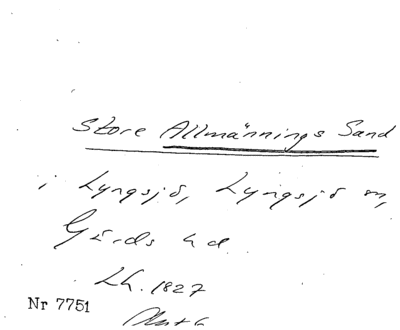 Store Allmännings Sand
i Lyngsjö, Lyngsjö sn,
Gärds hd.
Lh. 1827
Nr 7751